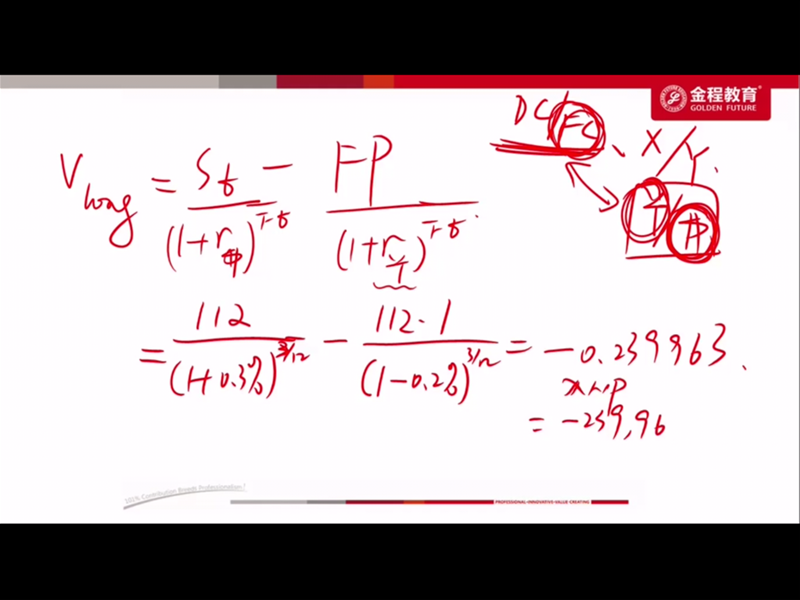 金程教育
GOLDEN FUTURE
DC/FC、X/Y.
V long = St / (1+r中)^T-t - FP / (1+r丫)^T-t.
丫/中
= 112 / (1+0.3%)^3/12 - 112.1 / (1-0.2%)^3/12 = -0.239963.
= -239,96
100% Contribution Breeds Professionalism!
PROFESSIONAL·INNOVATIVE·VALUE CREATING